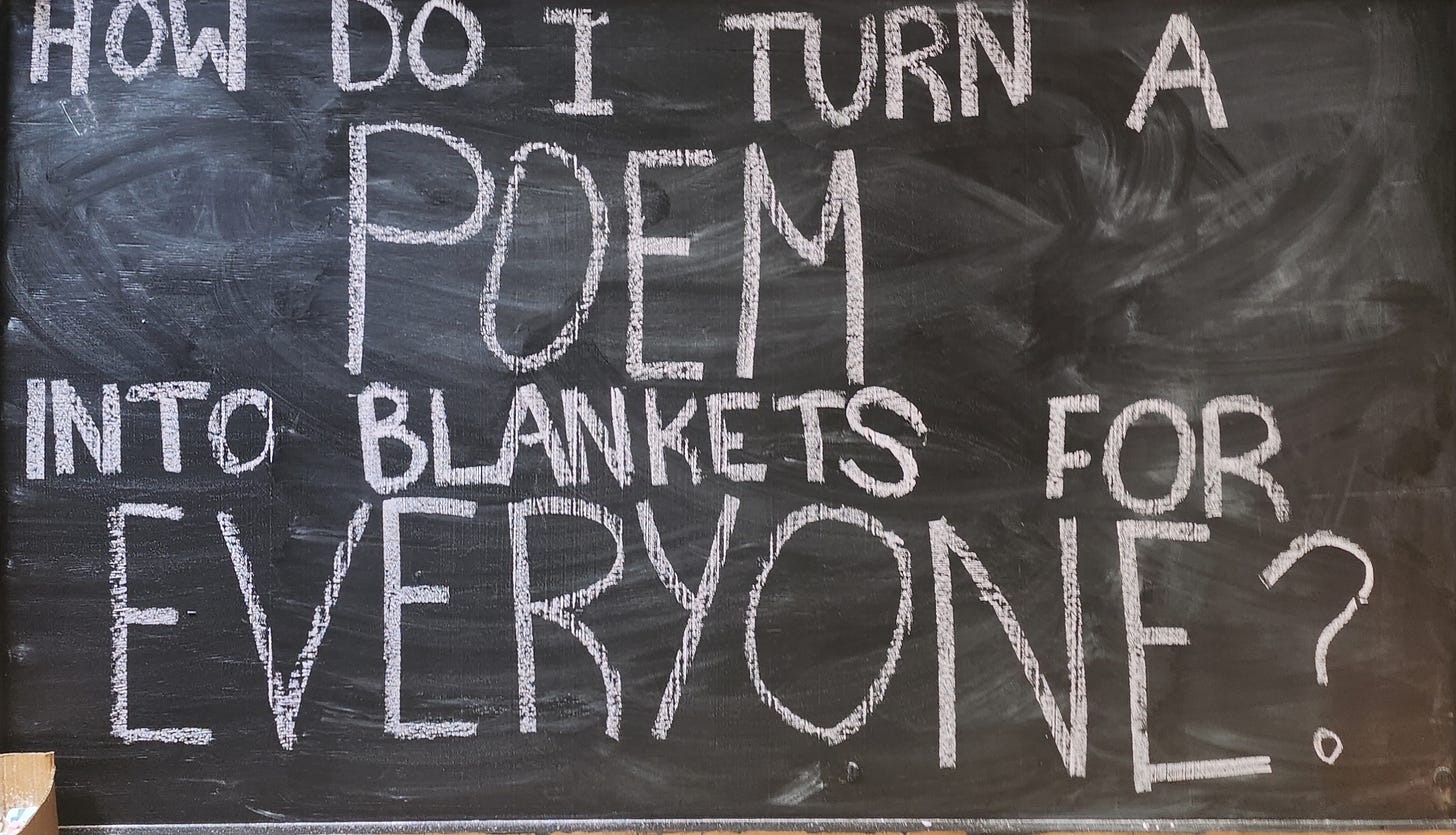 HOW DO I TURN A
POEM
INTO BLANKETS FOR
EVERYONE?